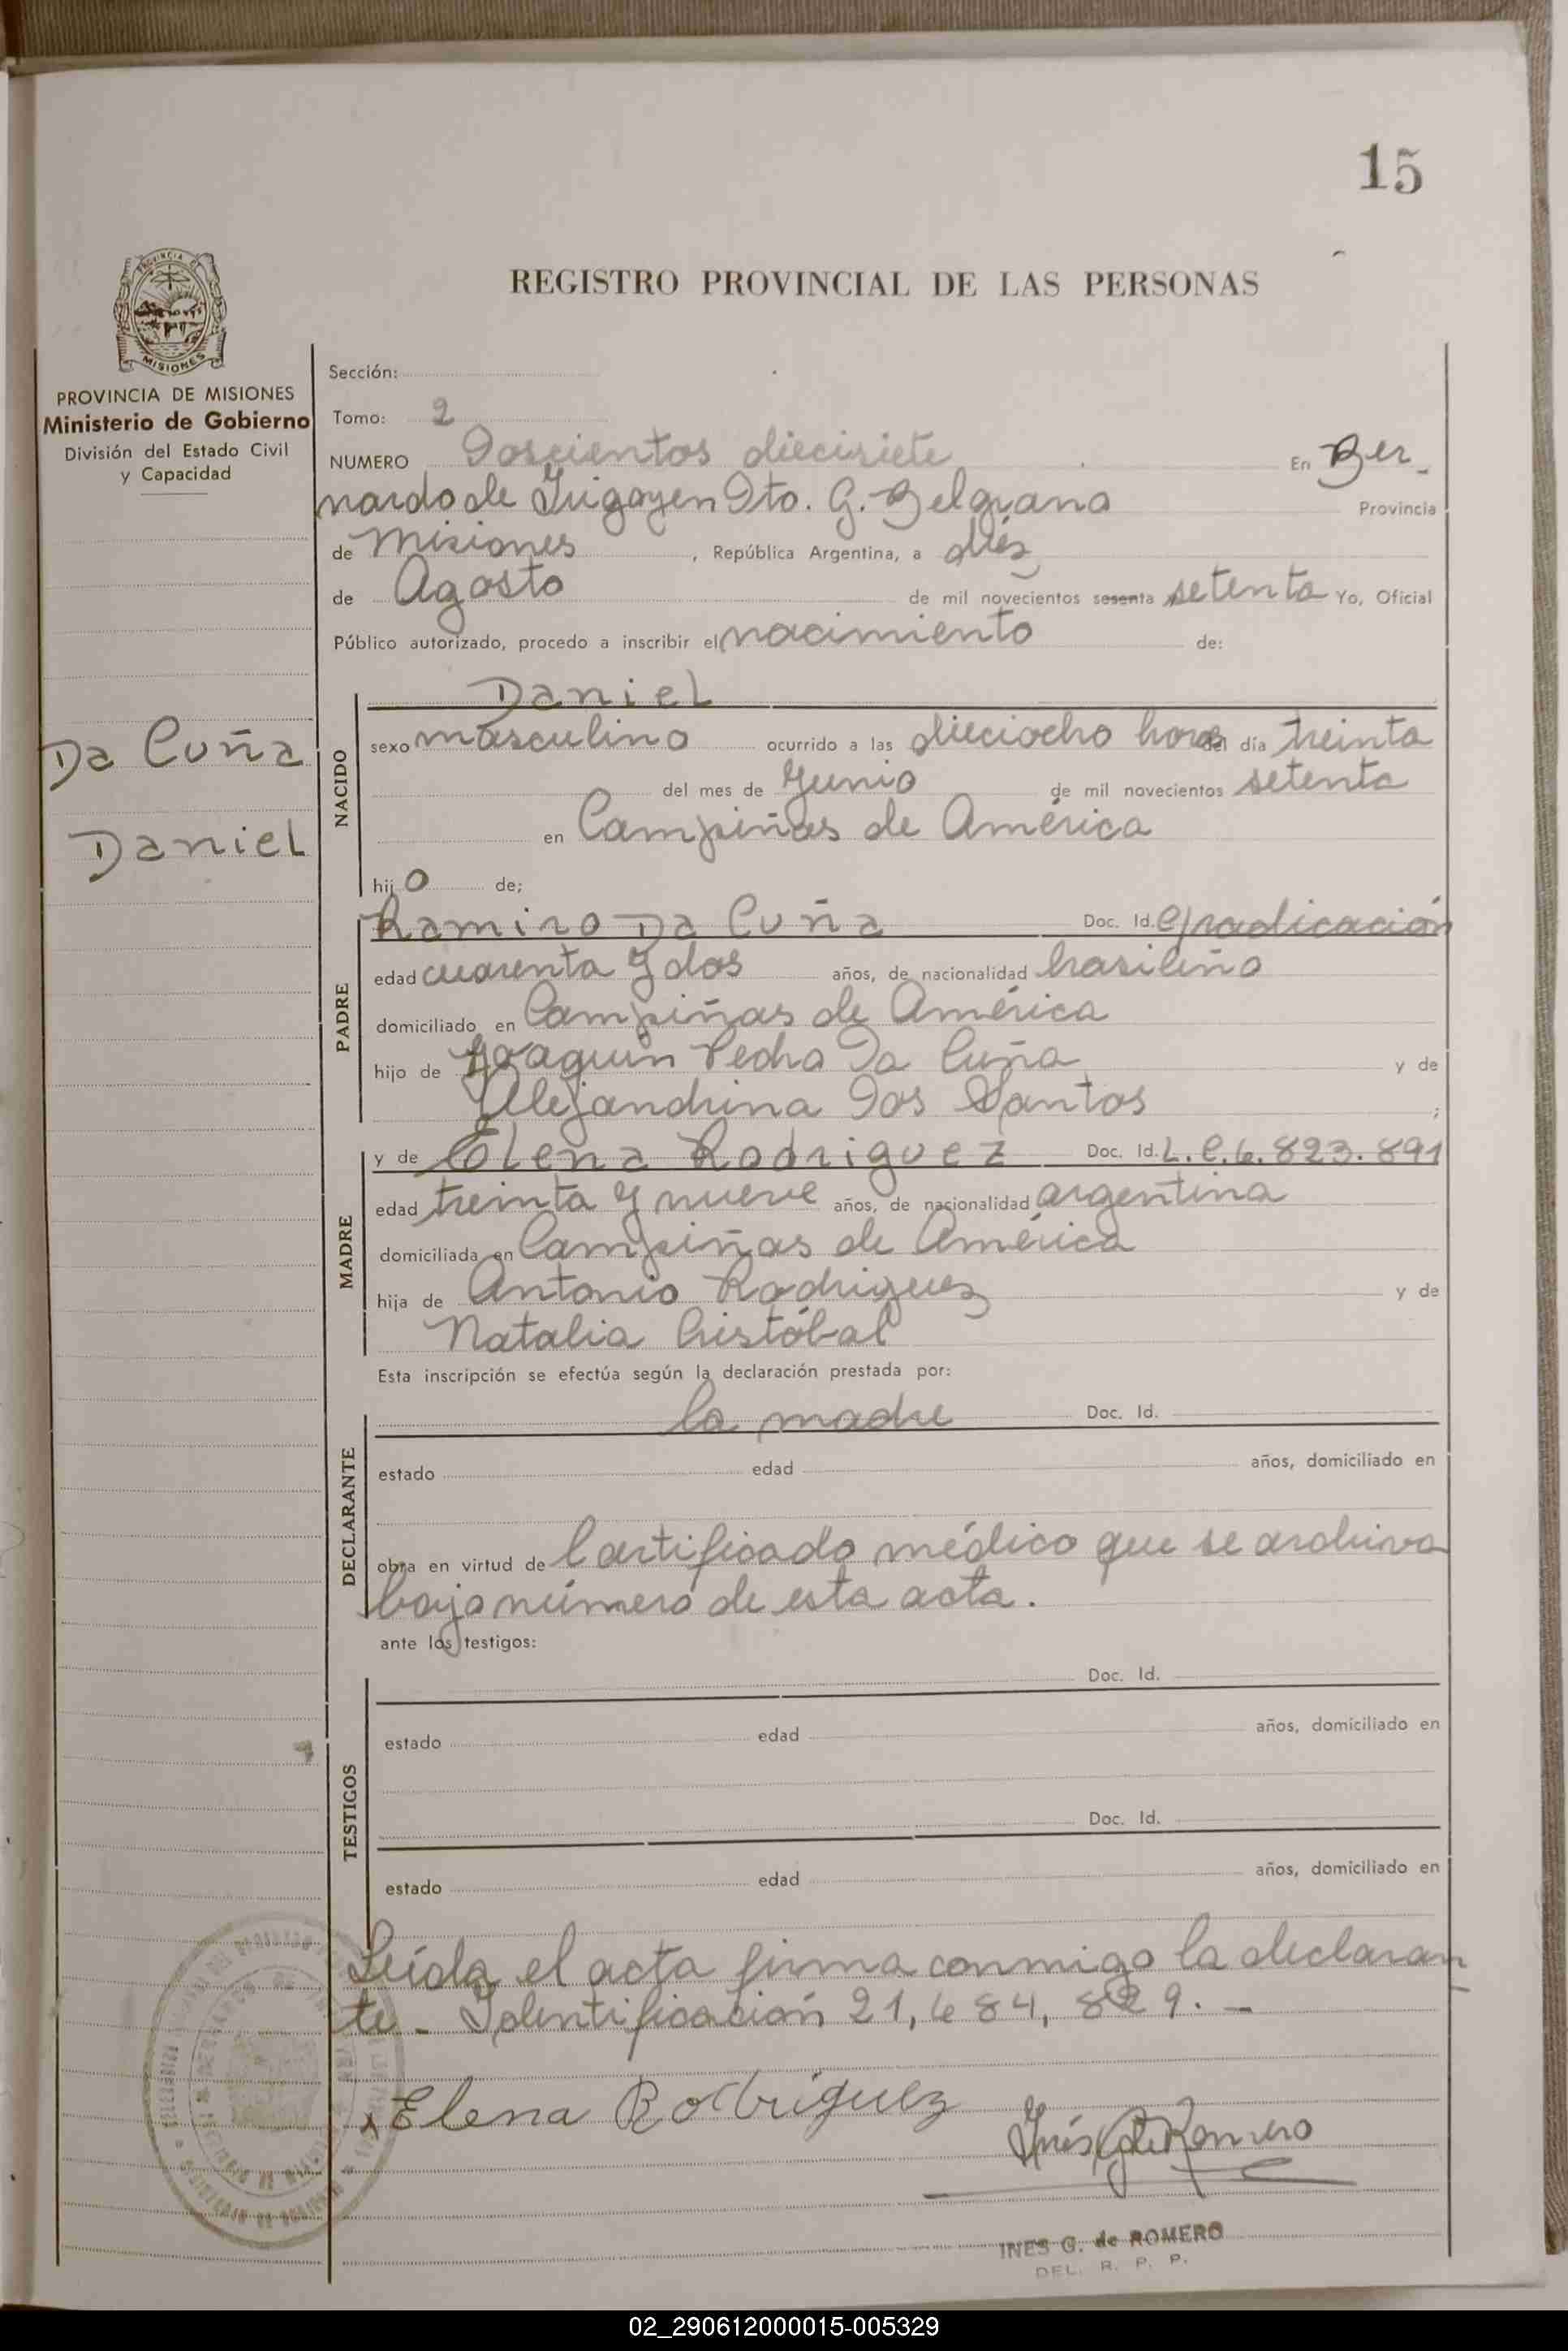 15
REGISTRO PROVINCIAL DE LAS PERSONAS
PROVINCIA DE MISIONES
Ministerio de Gobierno
División del Estado Civil
y Capacidad
Da Cuña
Daniel
Sección:
Tomo: 2
NUMERO Doscientos diecisiete En Ber-
nardo de Irigoyen Dto. G. Belgrano Provincia
de Misiones , República Argentina, a diéz
de Agosto de mil novecientos sesenta setenta Yo, Oficial
Público autorizado, procedo a inscribir el nacimiento de:
NACIDO
Daniel
sexo masculino ocurrido a las dieciocho horas del día treinta
del mes de Junio de mil novecientos setenta
en Campiñas de América
hijo de;
PADRE
Ramiro Da Cuña Doc. Id. e/radicación
edad cuarenta y dos años, de nacionalidad brasileño
domiciliado en Campiñas de América
hijo de Joaquin Pedro Da Cuña y de
Alejandrina Dos Santos ;
MADRE
y de Elena Rodriguez Doc. Id. L.C.6.823.891
edad treinta y nueve años, de nacionalidad argentina
domiciliada en Campiñas de América
hija de Antonio Rodriguez y de
Natalia Cristóbal
Esta inscripción se efectúa según la declaración prestada por:
DECLARANTE
la madre Doc. Id.
estado edad años, domiciliado en
obra en virtud de Certificado médico que se archiva
bajo número de esta acta.
ante los testigos:
TESTIGOS
Doc. Id.
estado edad años, domiciliado en
Doc. Id.
estado edad años, domiciliado en
Leída el acta firma conmigo la declaran
te - Identificación 21,684,829. -
Elena Rodriguez
Inés G de Romero
INES G. de ROMERO
DEL. R. P. P.
02_290612000015-005329